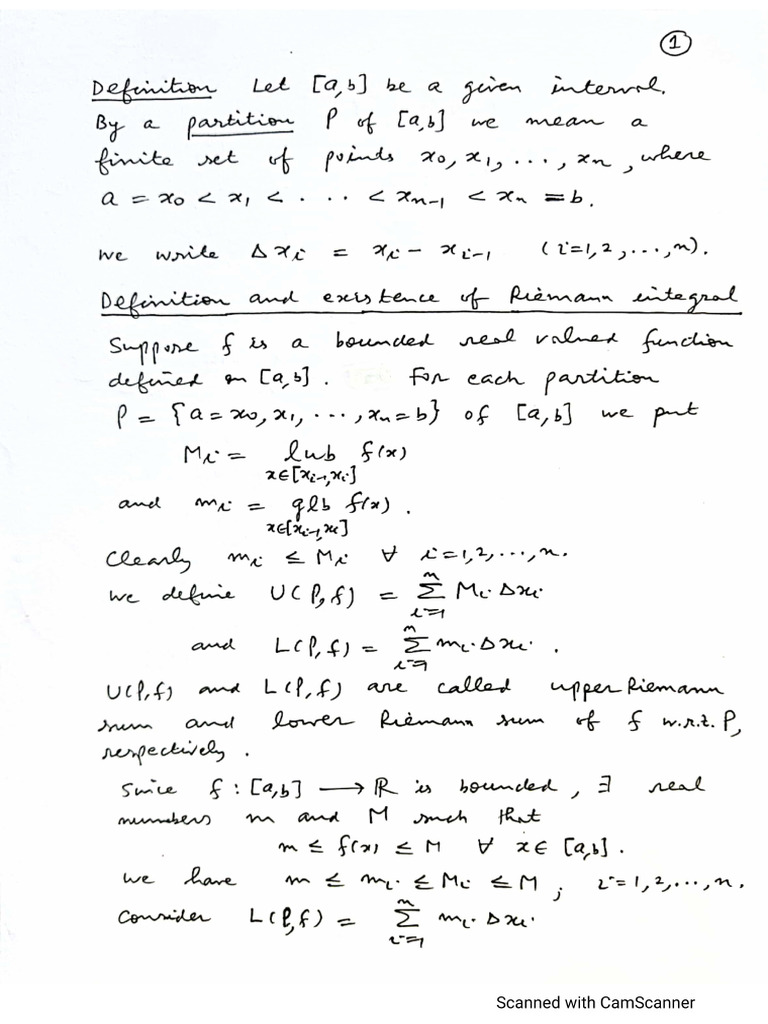 ①
Definition Let [a,b] be a given interval.
By a partition P of [a,b] we mean a
finite set of points x₀, x₁, ..., xₙ, where
a = x₀ < x₁ < . .. < xₙ₋₁ < xₙ = b.
we write Δxᵢ = xᵢ - xᵢ₋₁ (i=1,2,...,n).
Definition and existence of Riemann integral
Suppose f is a bounded real valued function
defined on [a,b]. For each partition
P = {a=x₀, x₁, ..., xₙ=b} of [a,b] we put
Mᵢ = lub f(x)
x∈[xᵢ₋₁,xᵢ]
and mᵢ = glb f(x).
x∈[xᵢ₋₁,xᵢ]
Clearly mᵢ ≤ Mᵢ ∀ i=1,2,...,n.
we define U(P,f) = ∑ⁿᵢ₌₁ Mᵢ Δxᵢ
and L(P,f) = ∑ⁿᵢ₌₁ mᵢ Δxᵢ .
U(P,f) and L(P,f) are called upper Riemann
sum and lower Riemann sum of f w.r.t. P,
respectively.
Since f : [a,b] ⟶ ℝ is bounded, ∃ real
numbers m and M such that
m ≤ f(x) ≤ M ∀ x∈ [a,b].
we have m ≤ mᵢ ≤ Mᵢ ≤ M ; i=1,2,...,n.
Consider L(P,f) = ∑ⁿᵢ₌₁ mᵢ Δxᵢ
Scanned with CamScanner